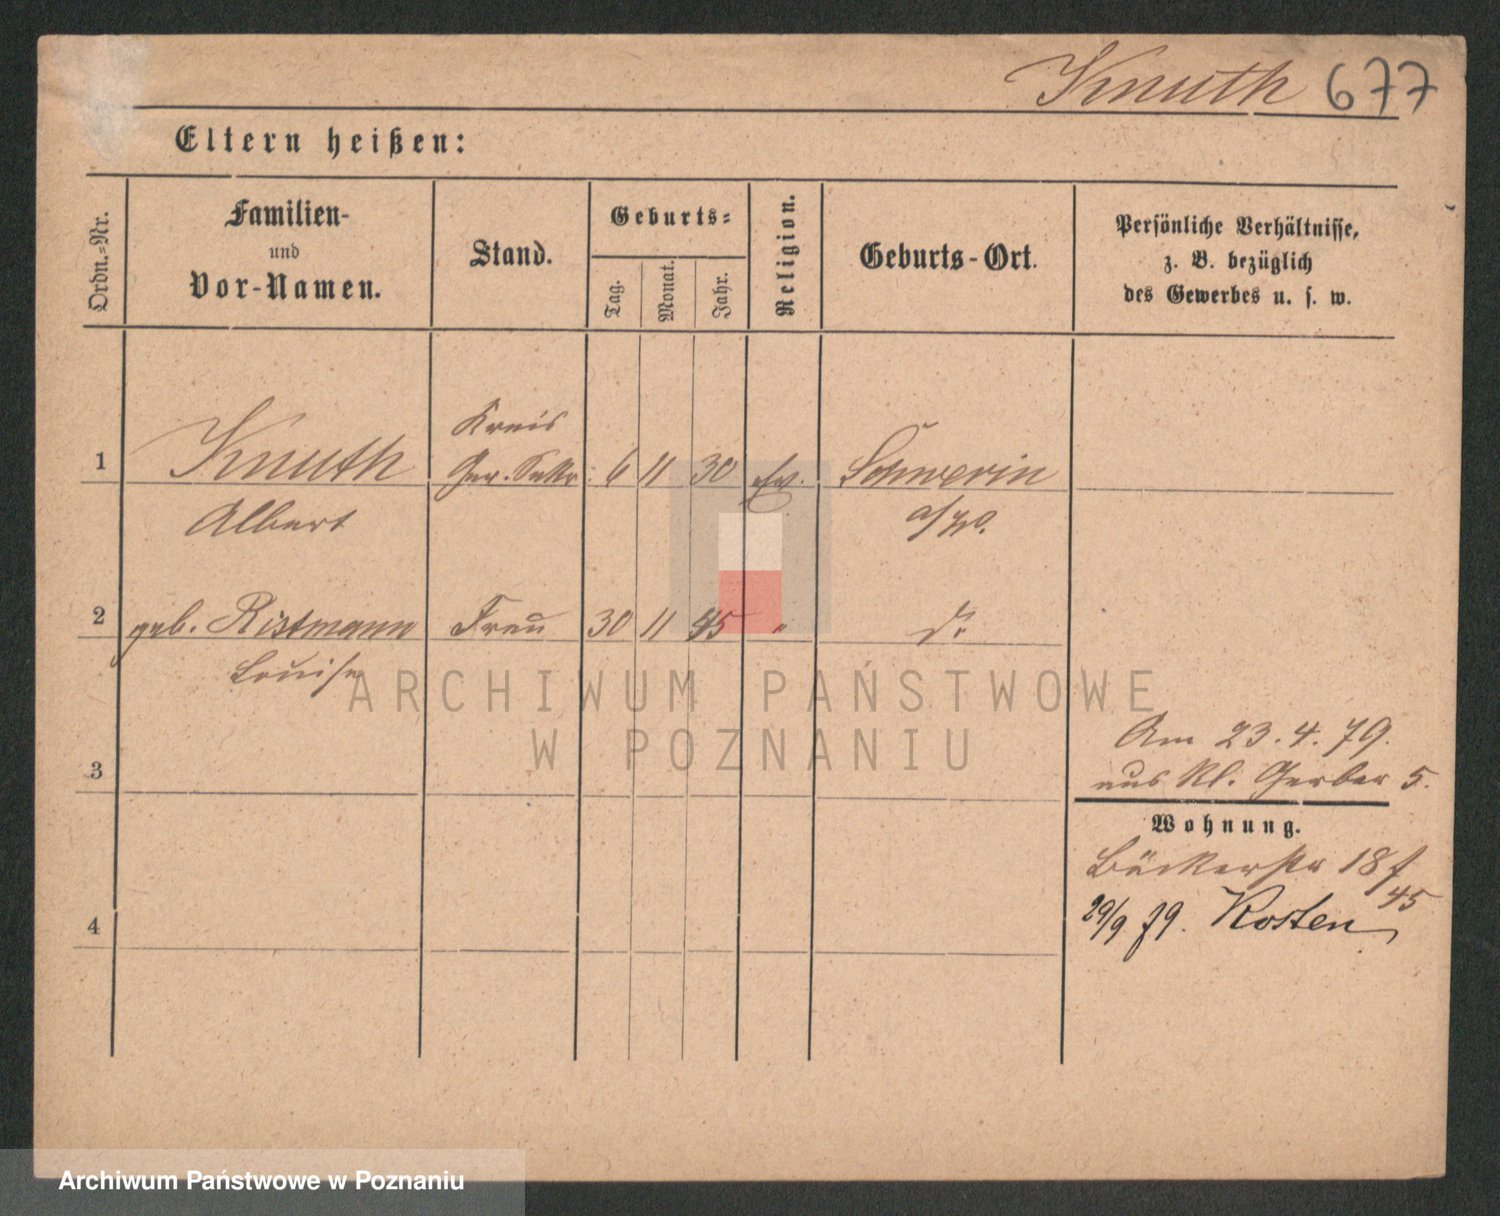 Knuth 677
Eltern heißen:
Ordn.-Nr.
Familien-
und
Vor-Namen.
Stand.
Geburts-
Tag.
Monat.
Jahr.
Religion.
Geburts-Ort.
Persönliche Verhältnisse,
z. B. bezüglich
des Gewerbes u. s. w.
Kreis
1 Knuth Ger. Sekr. 6 11 30 Ev. Schwerin
Albert a/W.
2 geb. Ristmann Frau 30 11 45 " do
Louise
ARCHIWUM PAŃSTWOWE
W POZNANIU
3
Am 23.4.79.
aus Kl. Gerber 5.
Wohnung.
Bäckerstr 18
45
29/9 79. Kosten
4
Archiwum Państwowe w Poznaniu